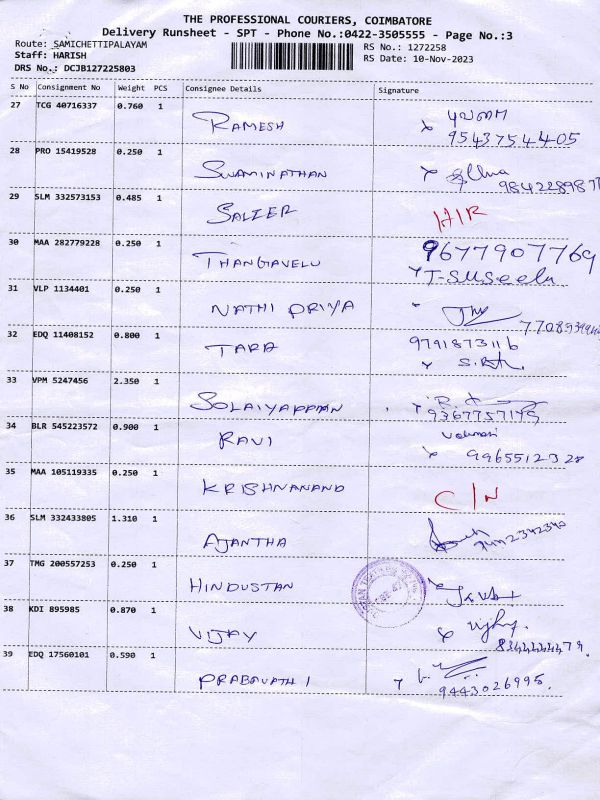 THE PROFESSIONAL COURIERS, COIMBATORE
Delivery Runsheet - SPT - Phone No.:0422-3505555 - Page No.:3
Route: SAMICHETTIPALAYAM
RS No.: 1272258
Staff: HARISH
RS Date: 10-Nov-2023
DRS No.: DCJB127225803
S No Consignment No Weight PCS Consignee Details Signature
27 TCG 40716337 0.760 1
RAMESH
x
9543754405
28 PRO 15419528 0.250 1
SWAMINATHAN x
984228987
29 SLM 332573153 0.485 1
SALZER H/R
30 MAA 282779228 0.250 1
9677907769
THANGAVELU x T-Suseela
31 VLP 1134401 0.250 1
NATHI PRIYA
32 EDQ 11408152 0.800 1
TARA 9791873116
x
33 VPM 5247456 2.350 1
SOLAIYAPPAN
9367757179
34 BLR 545223572 0.900 1
RAVI
x 9965512328
35 MAA 105119335 0.250 1
KRISHNANAND C/N
36 SLM 332433805 1.310 1
AJANTHA
37 TMG 200557253 0.250 1
HINDUSTAN
38 KDI 895985 0.870 1
VIJAY x
8344444479.
39 EDQ 17560101 0.590 1
PRABAVATHI
9443026995.